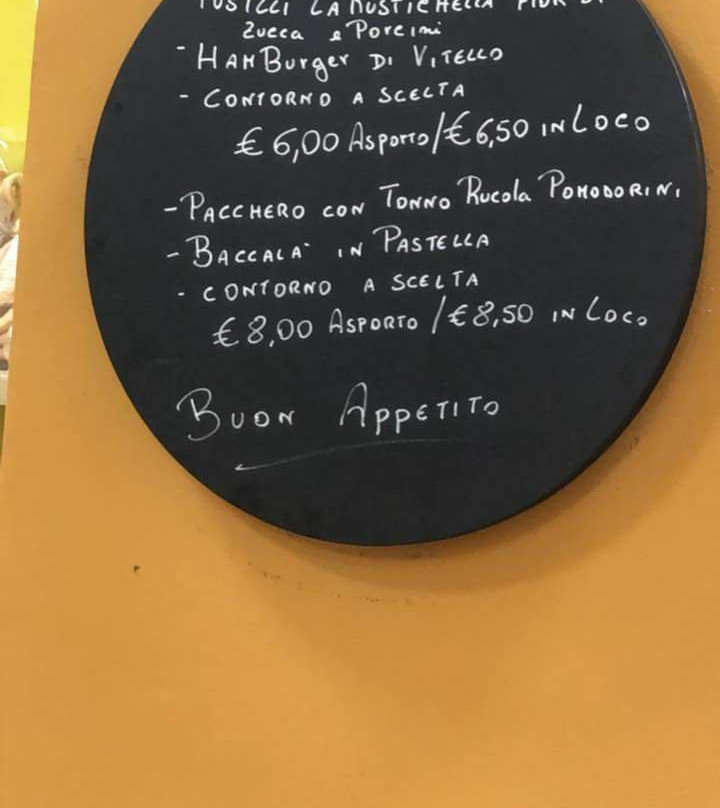 FUSILLI LA RUSTICHELLA FIOR DI
Zucca e Porcini
- HAMBurger DI VITELLO
- CONTORNO A SCELTA
€ 6,00 ASPORTO/€ 6,50 IN LOCO
- PACCHERO CON TONNO Rucola POMODORINI
- BACCALA' IN PASTELLA
- CONTORNO A SCELTA
€ 8,00 ASPORTO /€ 8,50 IN LOCO
BUON APPETITO